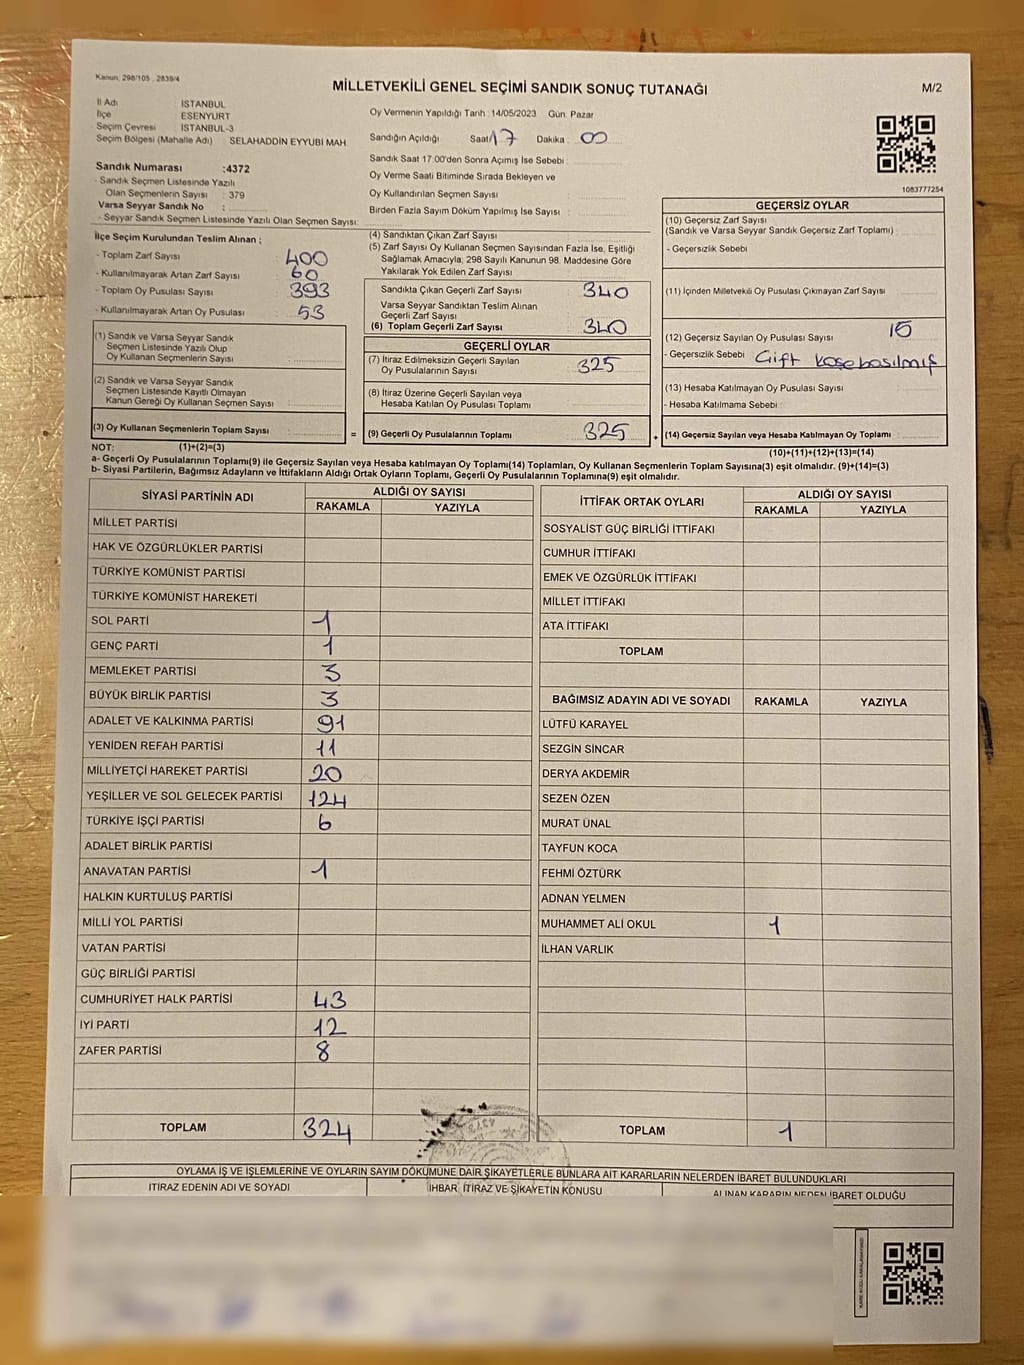 Kanun: 298/105 , 2839/4
MİLLETVEKİLİ GENEL SEÇİMİ SANDIK SONUÇ TUTANAĞI
M/2
İl Adı : İSTANBUL
İlçe : ESENYURT
Seçim Çevresi : İSTANBUL-3
Seçim Bölgesi (Mahalle Adı) : SELAHADDİN EYYUBİ MAH.
Sandık Numarası :4372
- Sandık Seçmen Listesinde Yazılı
Olan Seçmenlerin Sayısı : 379
Varsa Seyyar Sandık No :
- Seyyar Sandık Seçmen Listesinde Yazılı Olan Seçmen Sayısı:
Oy Vermenin Yapıldığı Tarih : 14/05/2023 Gün: Pazar
Sandığın Açıldığı Saat: 17 Dakika : 00
Sandık Saat 17:00'den Sonra Açımış İse Sebebi :
Oy Verme Saati Bitiminde Sırada Bekleyen ve
Oy Kullandırılan Seçmen Sayısı :
Birden Fazla Sayım Döküm Yapılmış İse Sayısı :
1083777254
İlçe Seçim Kurulundan Teslim Alınan ;
- Toplam Zarf Sayısı : 400
- Kullanılmayarak Artan Zarf Sayısı : 60
- Toplam Oy Pusulası Sayısı : 393
- Kullanılmayarak Artan Oy Pusulası : 53
(1) Sandık ve Varsa Seyyar Sandık
Seçmen Listesinde Yazılı Olup
Oy Kullanan Seçmenlerin Sayısı :
(2) Sandık ve Varsa Seyyar Sandık
Seçmen Listesinde Kayıtlı Olmayan
Kanun Gereği Oy Kullanan Seçmen Sayısı :
(3) Oy Kullanan Seçmenlerin Toplam Sayısı :
(4) Sandıktan Çıkan Zarf Sayısı :
(5) Zarf Sayısı Oy Kullanan Seçmen Sayısından Fazla İse, Eşitliği
Sağlamak Amacıyla; 298 Sayılı Kanunun 98. Maddesine Göre
Yakılarak Yok Edilen Zarf Sayısı :
Sandıkta Çıkan Geçerli Zarf Sayısı : 340
Varsa Seyyar Sandıktan Teslim Alınan
Geçerli Zarf Sayısı :
(6) Toplam Geçerli Zarf Sayısı : 340
GEÇERLİ OYLAR
(7) İtiraz Edilmeksizin Geçerli Sayılan
Oy Pusulalarının Sayısı : 325
(8) İtiraz Üzerine Geçerli Sayılan veya
Hesaba Katılan Oy Pusulası Toplamı :
= (9) Geçerli Oy Pusulalarının Toplamı : 325 +
GEÇERSİZ OYLAR
(10) Geçersiz Zarf Sayısı
(Sandık ve Varsa Seyyar Sandık Geçersiz Zarf Toplamı) :
- Geçersizlik Sebebi :
(11) İçinden Milletvekili Oy Pusulası Çıkmayan Zarf Sayısı :
(12) Geçersiz Sayılan Oy Pusulası Sayısı : 15
- Geçersizlik Sebebi : Çift kaşe basılmış
(13) Hesaba Katılmayan Oy Pusulası Sayısı :
- Hesaba Katılmama Sebebi :
(14) Geçersiz Sayılan veya Hesaba Katılmayan Oy Toplamı :
NOT: (1)+(2)=(3)
(10)+(11)+(12)+(13)=(14)
a- Geçerli Oy Pusulalarının Toplamı(9) ile Geçersiz Sayılan veya Hesaba katılmayan Oy Toplamı(14) Toplamları, Oy Kullanan Seçmenlerin Toplam Sayısına(3) eşit olmalıdır. (9)+(14)=(3)
b- Siyasi Partilerin, Bağımsız Adayların ve İttifakların Aldığı Ortak Oyların Toplamı, Geçerli Oy Pusulalarının Toplamına(9) eşit olmalıdır.
SİYASİ PARTİNİN ADI ALDIĞI OY SAYISI
RAKAMLA YAZIYLA
MİLLET PARTİSİ
HAK VE ÖZGÜRLÜKLER PARTİSİ
TÜRKİYE KOMÜNİST PARTİSİ
TÜRKİYE KOMÜNİST HAREKETİ
SOL PARTİ 1
GENÇ PARTİ 1
MEMLEKET PARTİSİ 3
BÜYÜK BİRLİK PARTİSİ 3
ADALET VE KALKINMA PARTİSİ 91
YENİDEN REFAH PARTİSİ 11
MİLLİYETÇİ HAREKET PARTİSİ 20
YEŞİLLER VE SOL GELECEK PARTİSİ 124
TÜRKİYE İŞÇİ PARTİSİ 6
ADALET BİRLİK PARTİSİ
ANAVATAN PARTİSİ 1
HALKIN KURTULUŞ PARTİSİ
MİLLİ YOL PARTİSİ
VATAN PARTİSİ
GÜÇ BİRLİĞİ PARTİSİ
CUMHURİYET HALK PARTİSİ 43
İYİ PARTİ 12
ZAFER PARTİSİ 8
TOPLAM 324
İTTİFAK ORTAK OYLARI ALDIĞI OY SAYISI
RAKAMLA YAZIYLA
SOSYALİST GÜÇ BİRLİĞİ İTTİFAKI
CUMHUR İTTİFAKI
EMEK VE ÖZGÜRLÜK İTTİFAKI
MİLLET İTTİFAKI
ATA İTTİFAKI
TOPLAM
BAĞIMSIZ ADAYIN ADI VE SOYADI RAKAMLA YAZIYLA
LÜTFÜ KARAYEL
SEZGİN SİNCAR
DERYA AKDEMİR
SEZEN ÖZEN
MURAT ÜNAL
TAYFUN KOCA
FEHMİ ÖZTÜRK
ADNAN YELMEN
MUHAMMET ALİ OKUL 1
İLHAN VARLIK
TOPLAM 1
OYLAMA İŞ VE İŞLEMLERİNE VE OYLARIN SAYIM DÖKÜMÜNE DAİR ŞİKAYETLERLE BUNLARA AİT KARARLARIN NELERDEN İBARET BULUNDUKLARI
İTİRAZ EDENİN ADI VE SOYADI İHBAR, İTİRAZ VE ŞİKAYETİN KONUSU ALINAN KARARIN NEDEN İBARET OLDUĞU